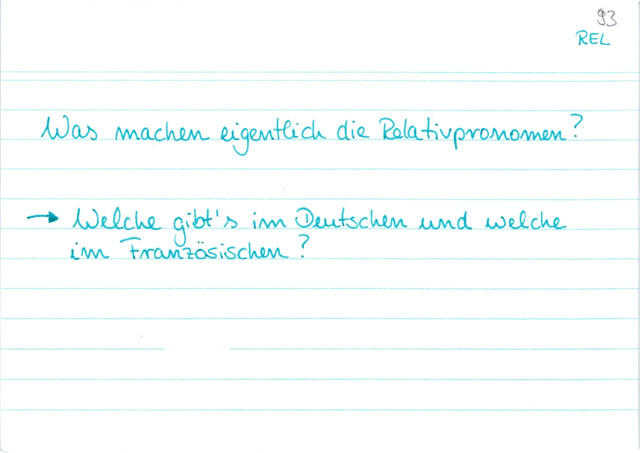 93
REL
Was machen eigentlich die Relativpronomen?
→ Welche gibt's im Deutschen und welche
im Französischen?